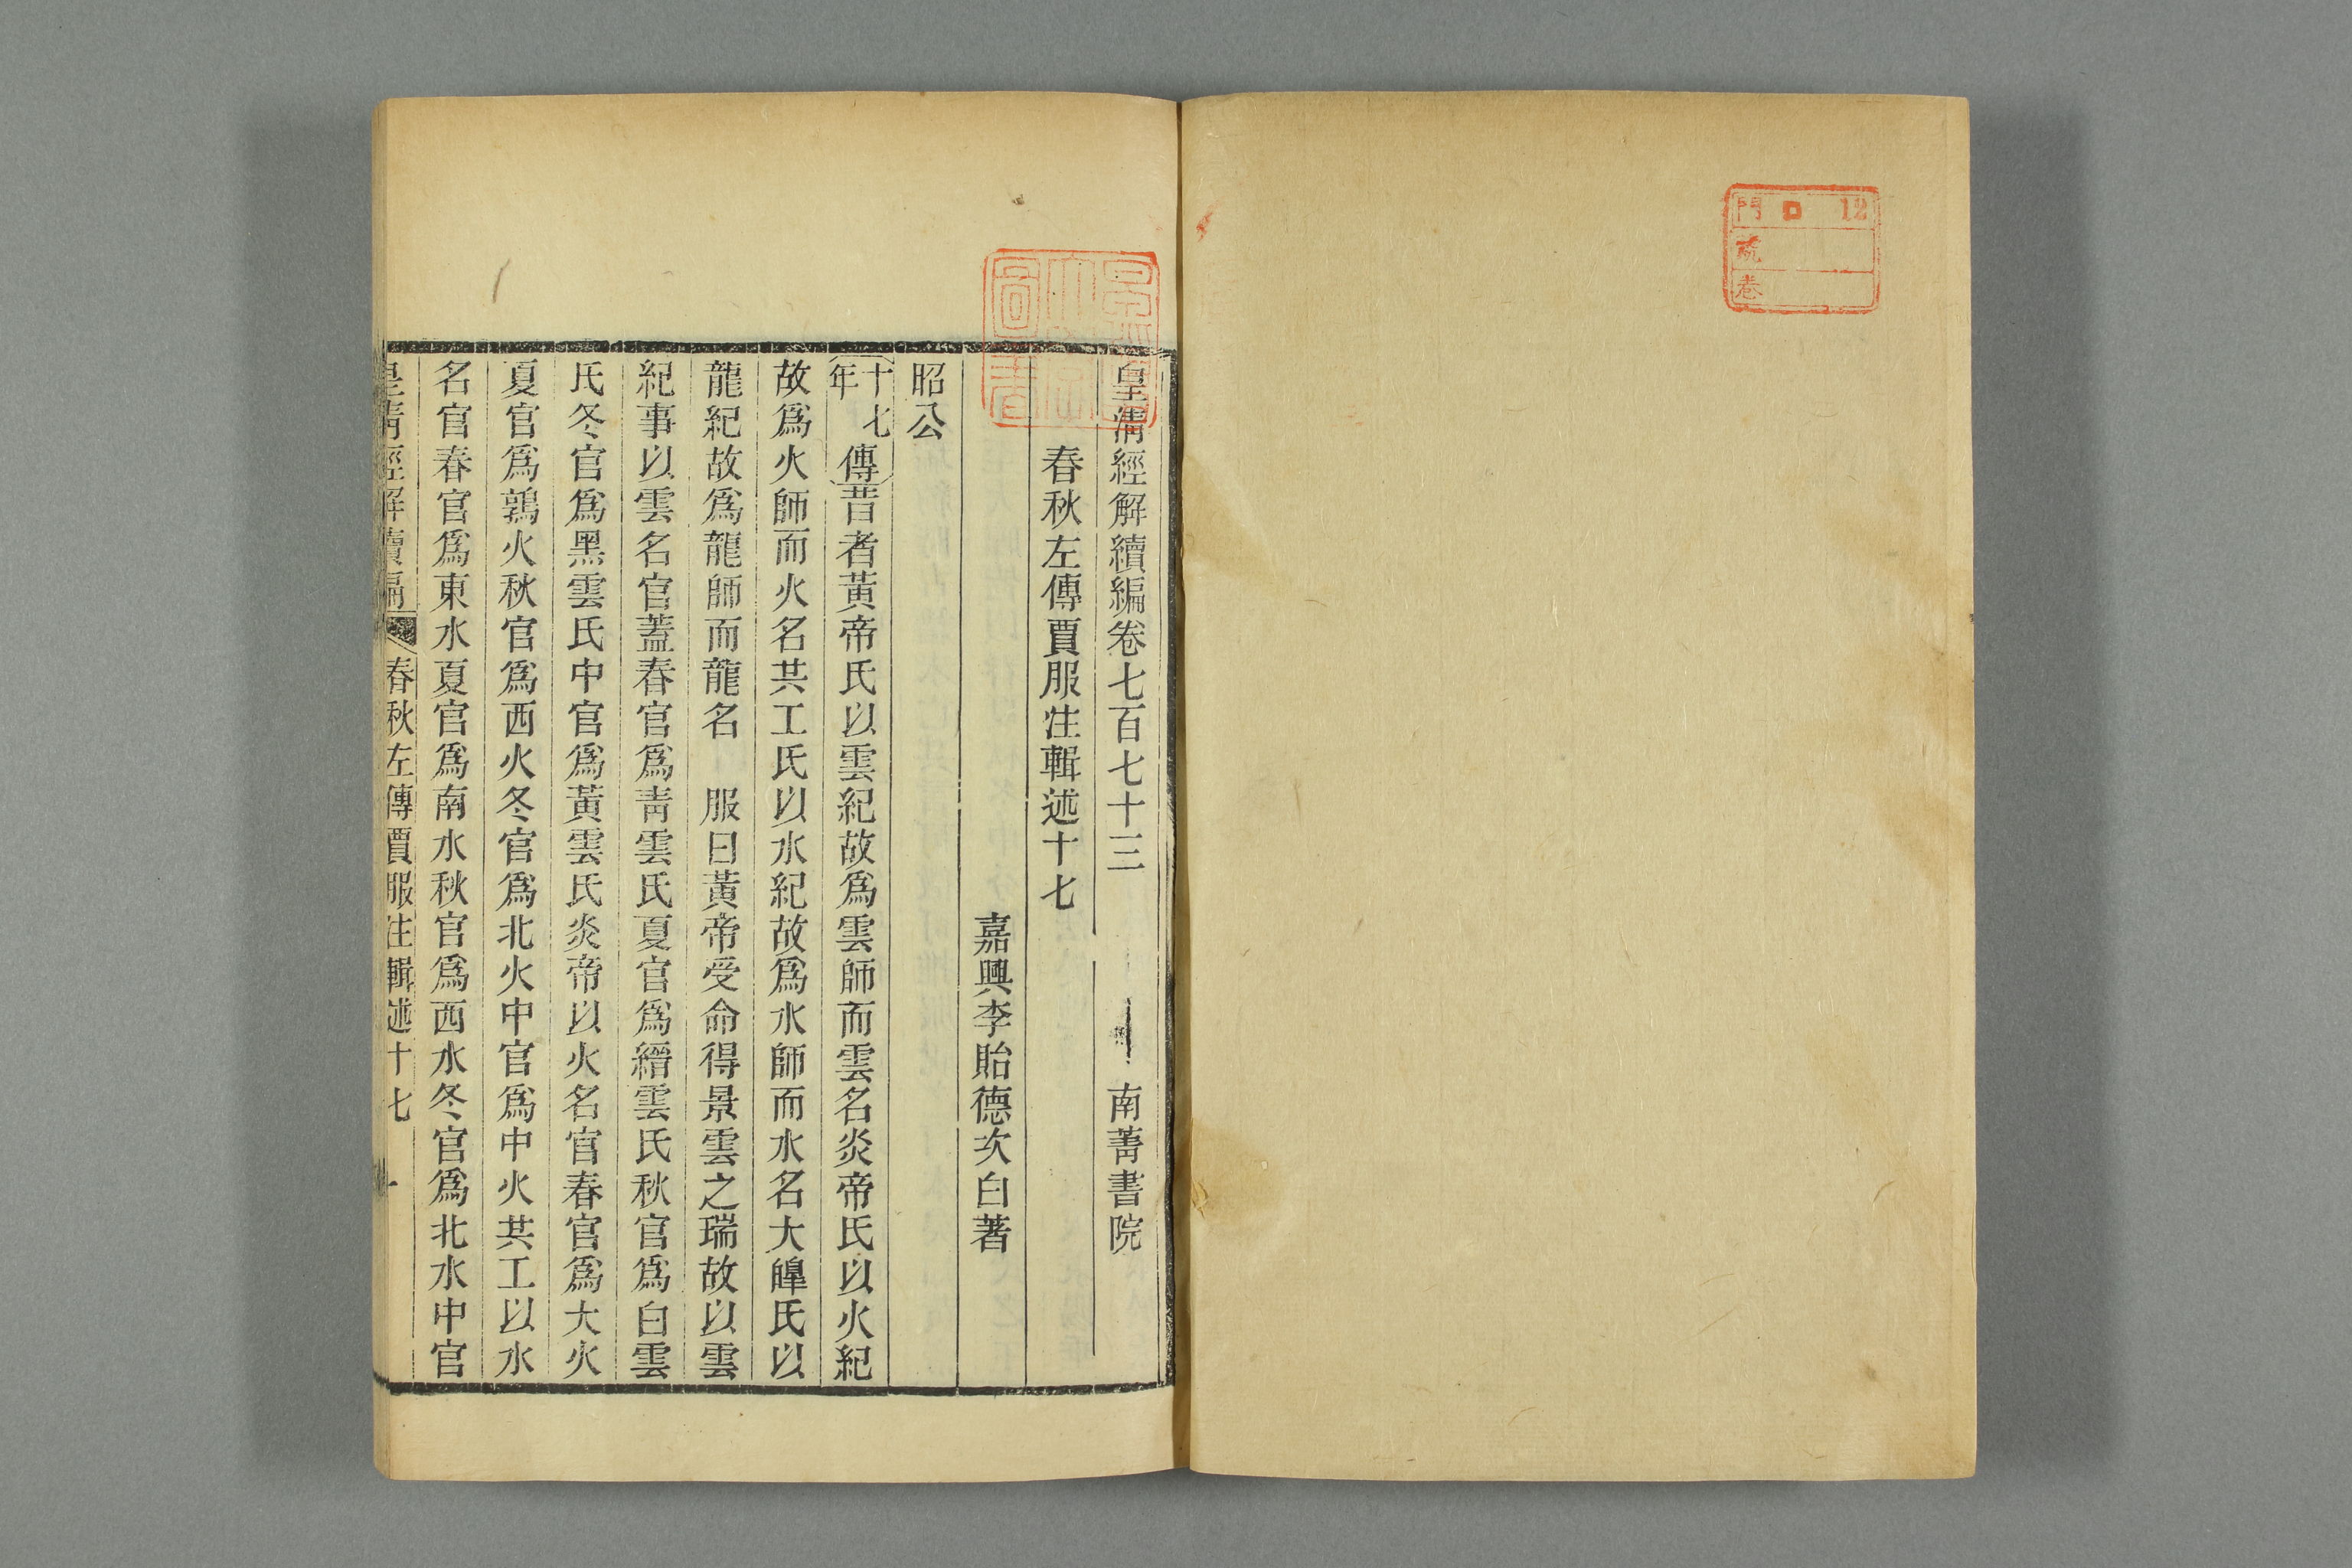 門 口 12
號
卷
皇清經解續編卷七百七十三 南菁書院
春秋左傳賈服注輯述十七
嘉興李貽德次白著
昭公
十七年傳昔者黃帝氏以雲紀故爲雲師而雲名炎帝氏以火紀
故爲火師而火名共工氏以水紀故爲水師而水名大皥氏以
龍紀故爲龍師而龍名 服曰黃帝受命得景雲之瑞故以雲
紀事以雲名官蓋春官爲靑雲氏夏官爲縉雲氏秋官爲白雲
氏冬官爲黑雲氏中官爲黃雲氏炎帝以火名官春官爲大火
夏官爲鶉火秋官爲西火冬官爲北火中官爲中火共工以水
名官春官爲東水夏官爲南水秋官爲西水冬官爲北水中官
皇清經解續編 春秋左傳賈服注輯述十七 一